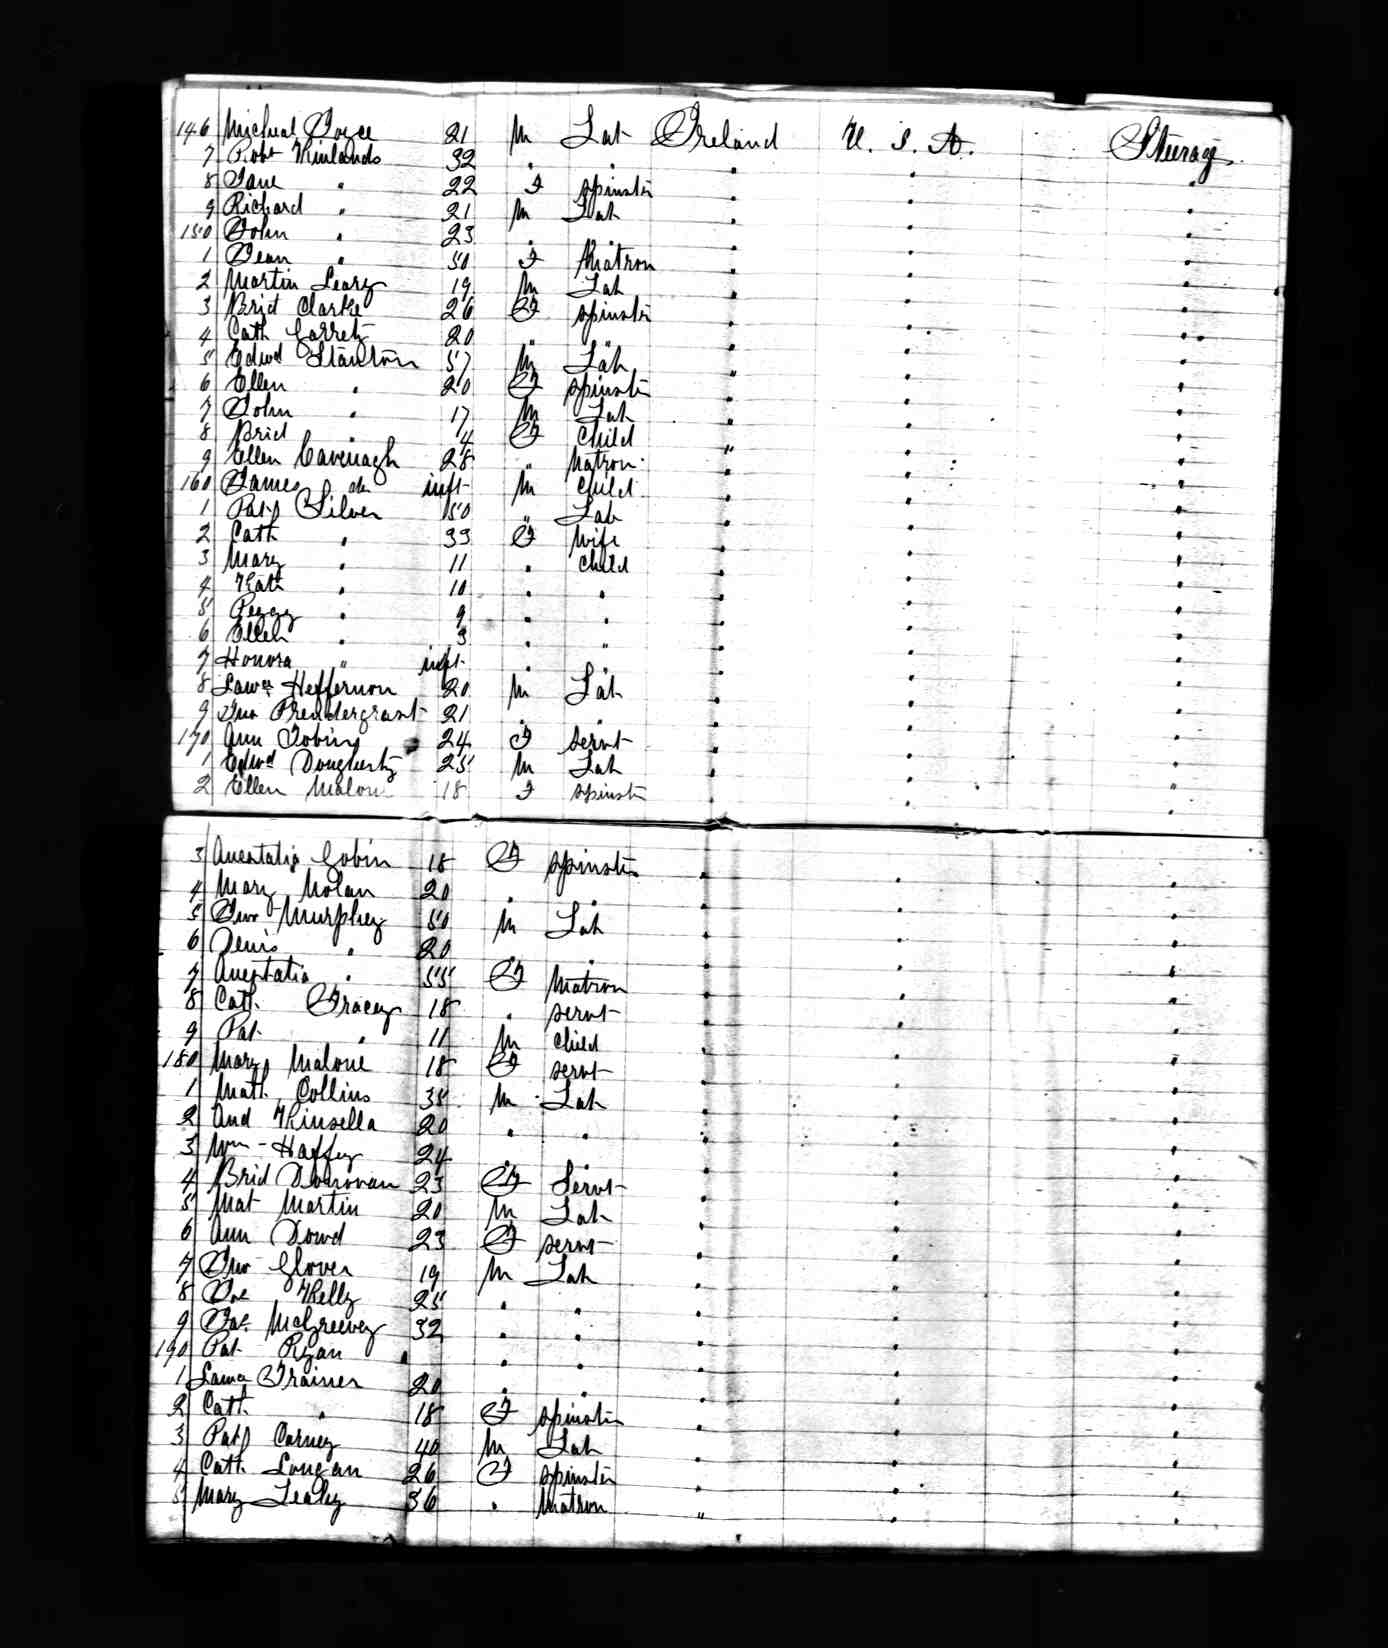 146 Micheal Joyce 21 M Lab Ireland U. S. A. Steerage
7 Robt 32 " " " " "
8 Jane " 22 F Spinster " " "
9 Richard " 21 M Lab " " "
150 John " 23 " " " " "
1 Jean " 50 F Matron " " "
2 Martin Leary 19 M Lab " " "
3 Brid Clarke 26 F Spinster " " "
4 Cath Garrety 20 " " " " "
5 Edwd Stanton 57 M Lab " " "
6 Ellen " 20 F Spinster " " "
7 John " 17 M Lab " " "
8 Brid " 14 F Child " " "
9 Ellen Cavenagh 28 " Matron " " "
160 James do inft M Child " " "
1 Patk Silver 50 " Lab " " "
2 Cath " 33 F Wife " " "
3 Mary " 11 " Child " " "
4 Kath " 10 " " " " "
5 Peggy " 9 " " " " "
6 Ellen " 3 " " " " "
7 Honora " inft " " " " "
8 Lawce Heffernon 20 M Lab " " "
9 Jno Prendergrast 21 " " " " "
170 Ann Tobin 24 F Servt " " "
1 Edwd Dougherty 25 M Lab " " "
2 Ellen Malone 18 F Spinst " " "
3 Anestatia Gobin 18 F Spinster " " "
4 Mary Nolan 20 " " " " "
5 Jno Murphey 50 M Lab " " "
6 Denis " 20 " " " " "
7 Anestatia " 55 F Matron " " "
8 Cath. Tracey 18 " Servt " " "
9 Pat " 11 M Child " " "
180 Mary Malone 18 F Servt " " "
1 Matt Collins 35 M Lab " " "
2 And Kinsella 20 " " " " "
3 Wm Haffey 24 " " " " "
4 Brid Donovan 23 F Servt " " "
5 Mat Martin 20 M Lab " " "
6 Ann Dowd 23 F Servt " " "
7 Jno Glover 19 M Lab " " "
8 Jos Kelly 25 " " " " "
9 Jas. McGreevey 32 " " " " "
190 Pat Ryan " " " " " "
1 Lawce Trainer 20 " " " " "
2 Cath " 18 F Spinster " " "
3 Patk Carney 40 M Lab " " "
4 Cath Longan 26 F Spinster " " "
5 Mary Leahy 36 " Matron " " "